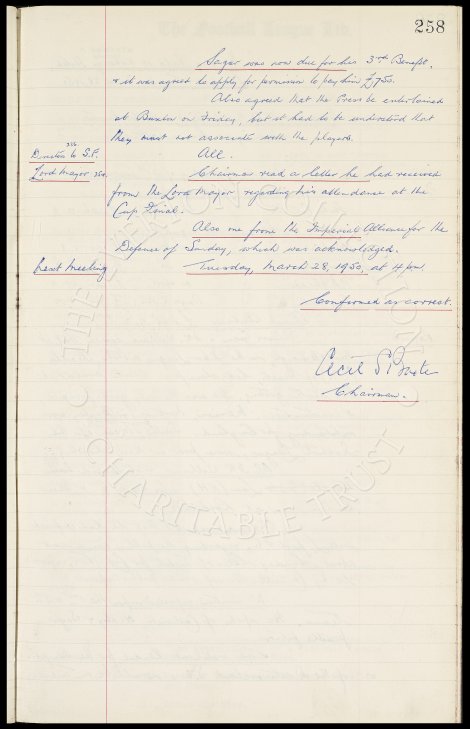 258
Sagar was now due for his 3rd Benefit,
& it was agreed to apply for permission to pay him £750.
Also agreed that the Press be entertained
at Buxton on Friday, but it had to be understood that
they must not associate with the players.
Directors to S.F.
All.
Lord Mayor
Chairman read a letter he had received
from the Lord Mayor regarding his attendance at the
Cup Final.
Also one from the Imperial Alliance for the
Defence of Sunday, which was acknowledged.
Next Meeting
Tuesday, March 28, 1950, at 4 pm.
Confirmed as correct.
Cecil S Baxter
Chairman.
THE EVERTON COLLECTION
CHARITABLE TRUST